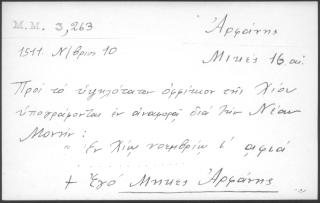 M.M. 3,263 Ἀρφάνης
1511 Ν/βρίου 10 Μικές 16 αἰ.
Πρὸς τὸ ὑψηλότατον ὀφφίκιον τῆς Χίου
ὑπογράφονται ἐν ἀναφορᾷ διὰ τὴν Νέαν
Μονήν:
" Ἐν Χίῳ νοεμβρίῳ ι΄ αφιά
+ Ἐγὸ Μηκὲς Ἀρφάνης